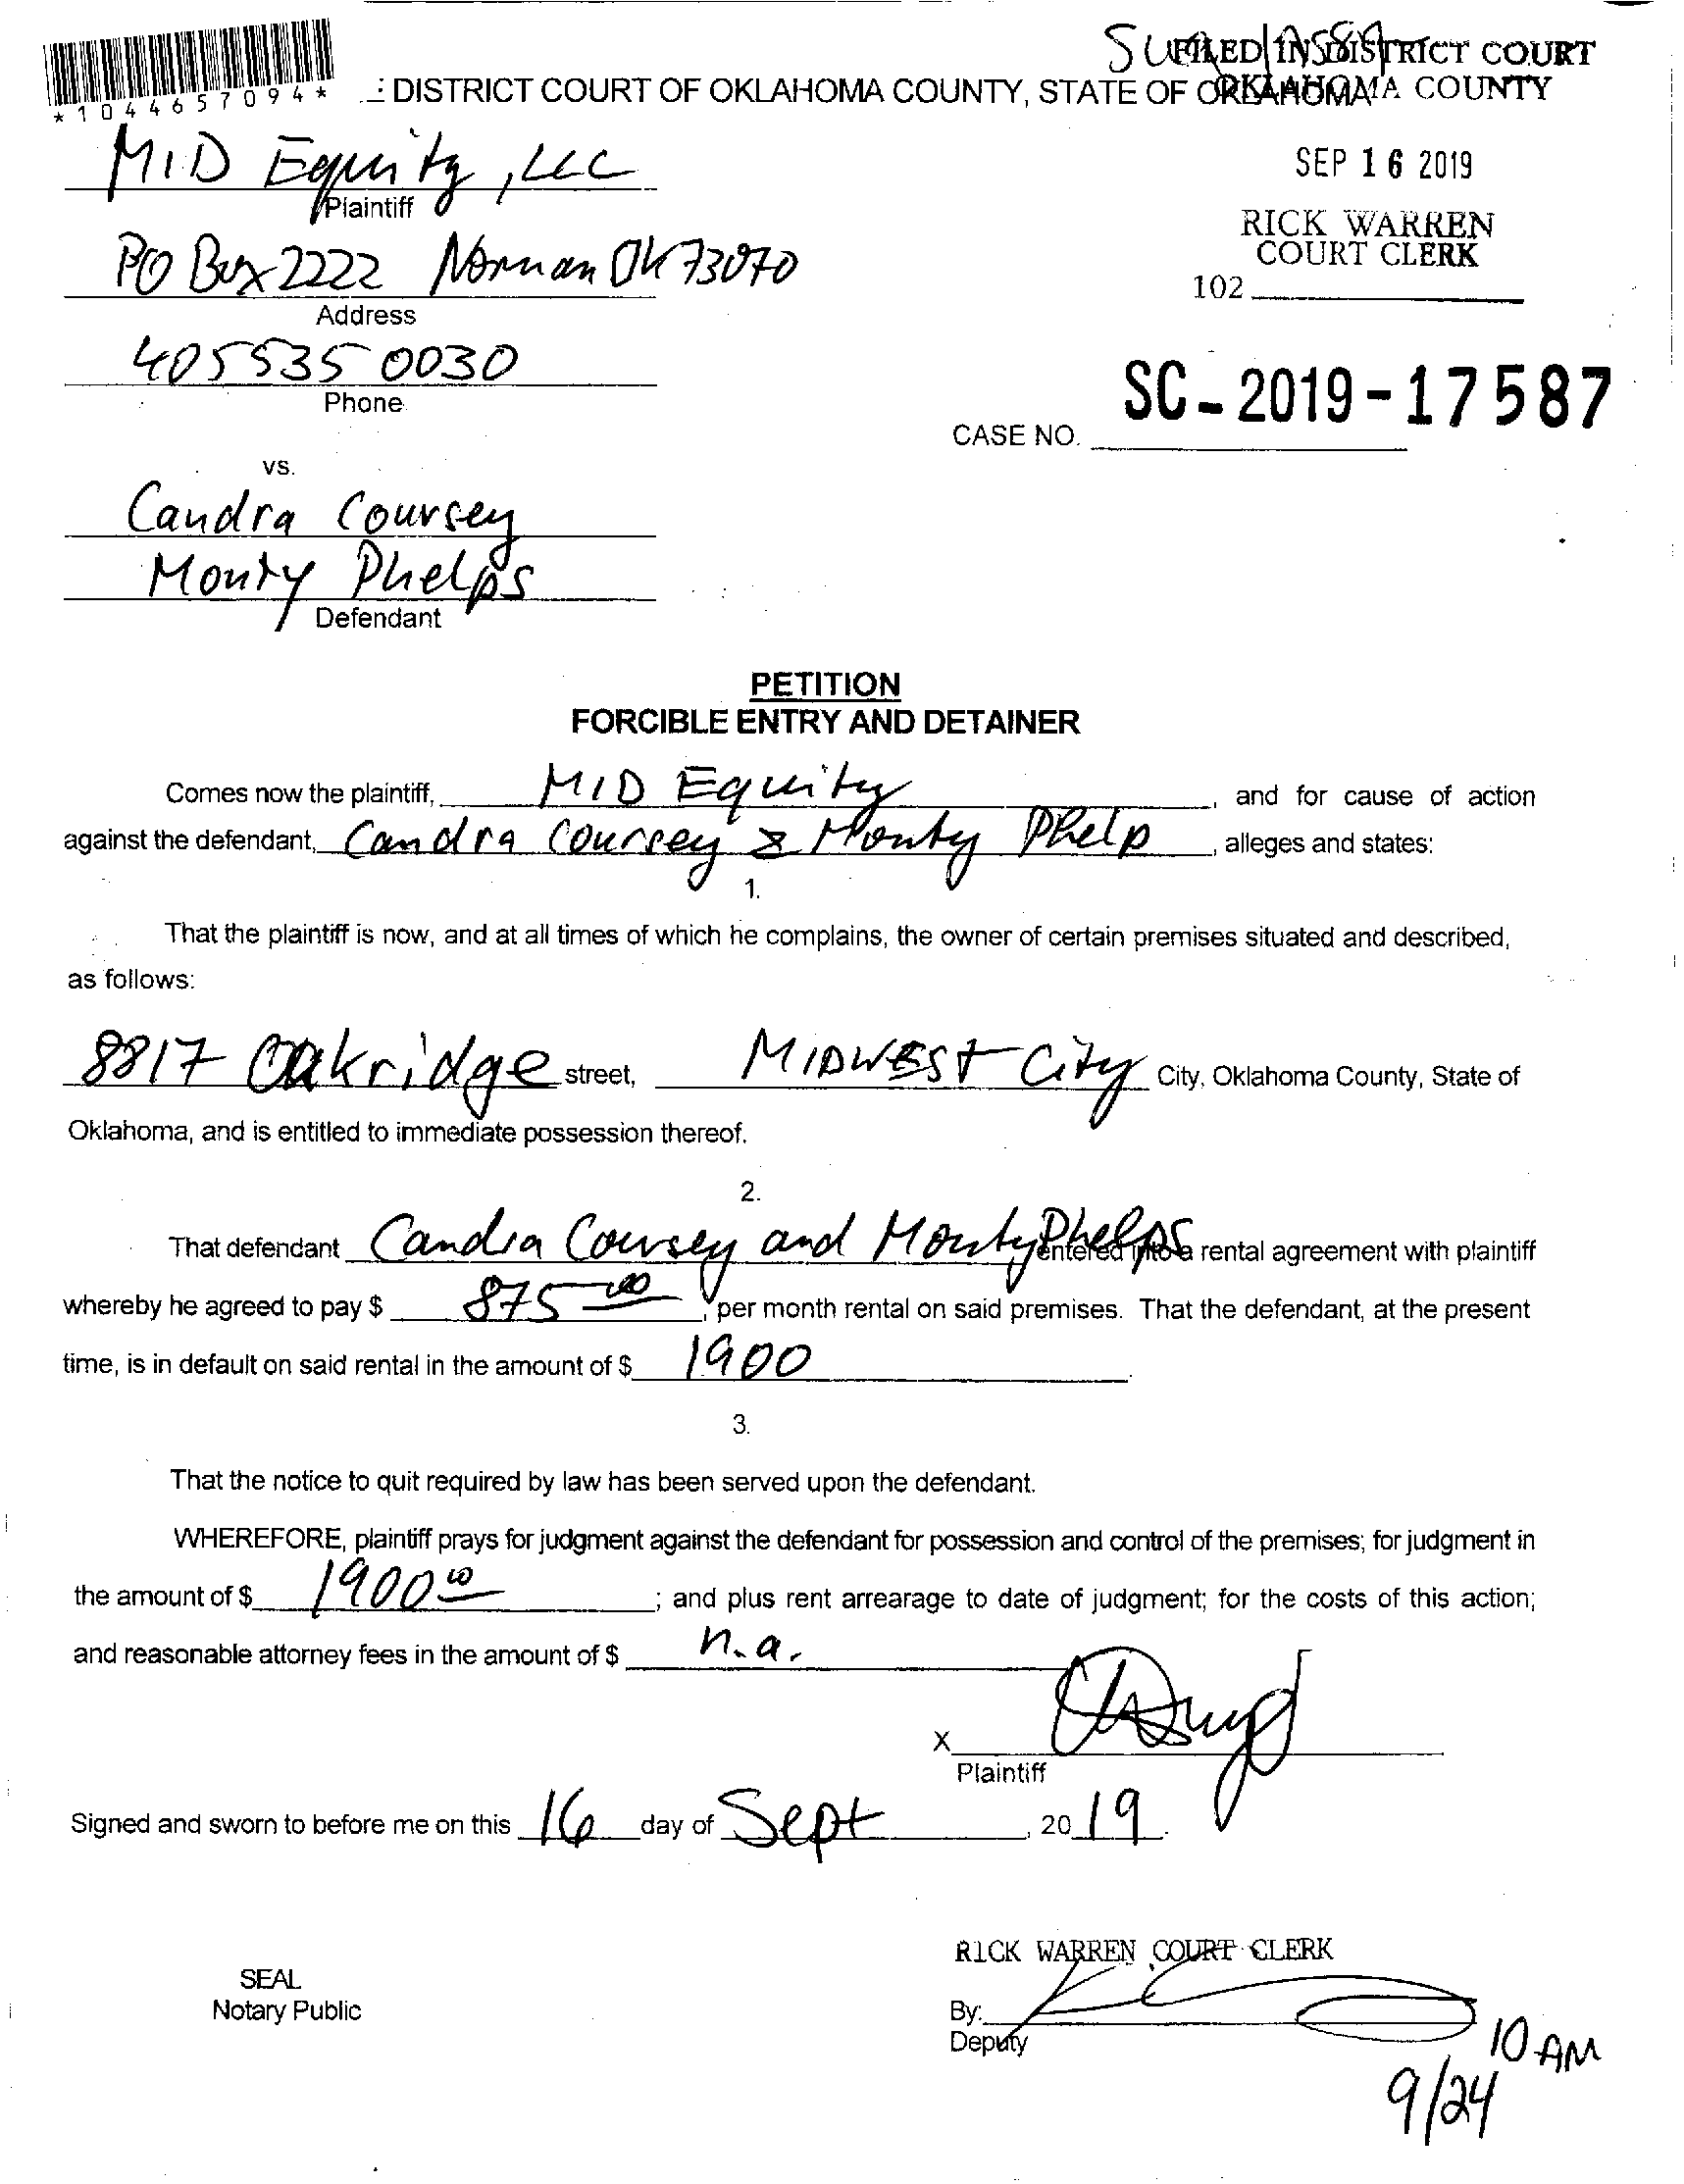 FILED IN DISTRICT COURT
DISTRICT COURT OF OKLAHOMA COUNTY, STATE OF OKLAHOMA
OKLAHOMA COUNTY
*1044657094*
MID Equity, LLC
Plaintiff
SEP 16 2019
RICK WARREN
COURT CLERK
PO Box 2222 Norman OK 73070
Address
102
405 535 0030
Phone
SC-2019-17587
CASE NO.
vs.
Candra Coursey
Monty Phelps
Defendant
PETITION
FORCIBLE ENTRY AND DETAINER
Comes now the plaintiff, MID Equity, and for cause of action
against the defendant, Candra Coursey & Monty Phelp, alleges and states:
1.
That the plaintiff is now, and at all times of which he complains, the owner of certain premises situated and described,
as follows:
8817 Oakridge street, MIDWEST City City, Oklahoma County, State of
Oklahoma, and is entitled to immediate possession thereof.
2.
That defendant Candra Coursey and Monty Phelps, entered into a rental agreement with plaintiff
whereby he agreed to pay $ 875.00, per month rental on said premises. That the defendant, at the present
time, is in default on said rental in the amount of $ 1900.
3.
That the notice to quit required by law has been served upon the defendant.
WHEREFORE, plaintiff prays for judgment against the defendant for possession and control of the premises; for judgment in
the amount of $ 1900 00; and plus rent arrearage to date of judgment; for the costs of this action;
and reasonable attorney fees in the amount of $ n.a.
X
Plaintiff
Signed and sworn to before me on this 16 day of Sept, 20 19.
RICK WARREN COURT CLERK
SEAL
Notary Public
By:
Deputy
10 AM
9/24